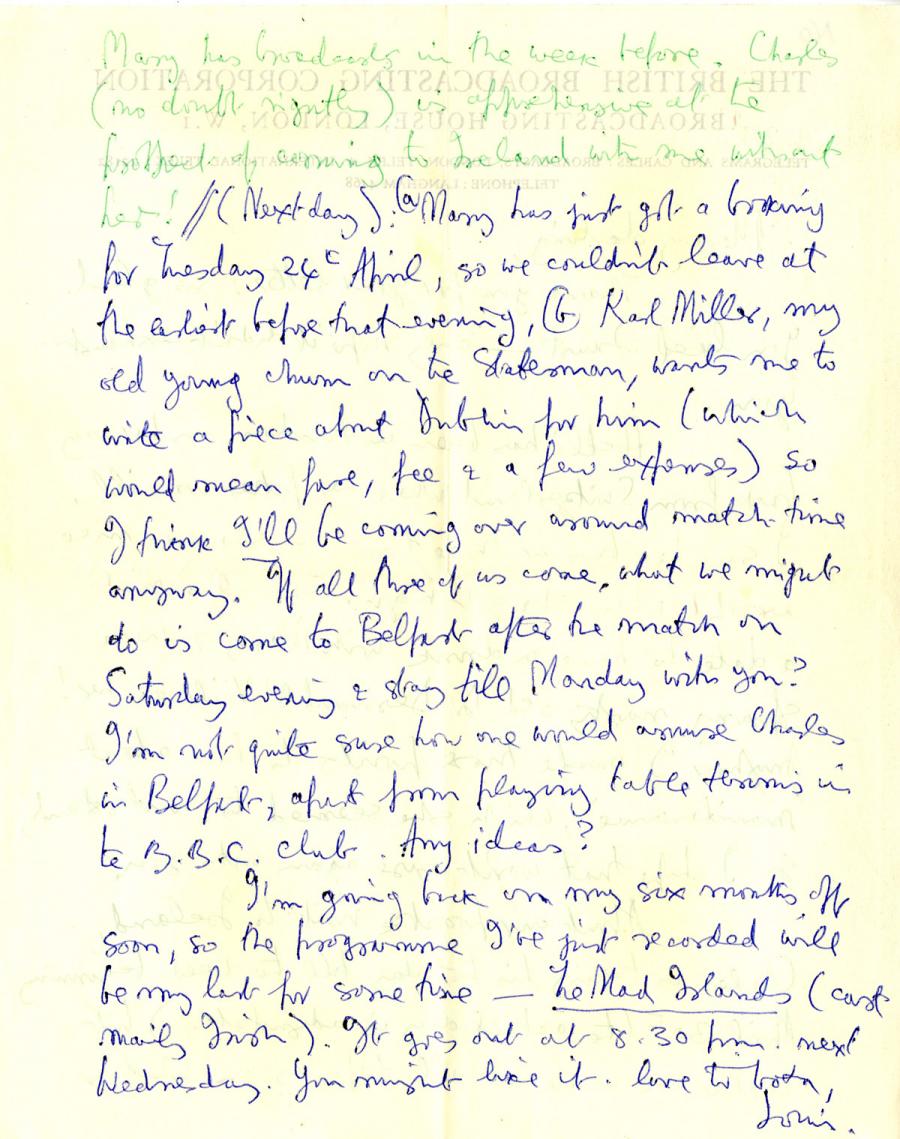 Mary has broadcasts in the week before. Charles
(no doubt rightly) is apprehensive at the
prospect of coming to Ireland with me without
her! // (Next day). (a) Mary has just got a booking
for Tuesday 24th April, so we couldn't leave at
the earliest before that evening, (b) Karl Miller, my
old young chum on the Statesman, wants me to
write a piece about Dublin for him (which
would mean fare, fee & a few expenses) so
I think I'll be coming over around match-time
anyway. If all three of us come, what we might
do is come to Belfast after the match on
Saturday evening & stay till Monday with you?
I'm not quite sure how one would amuse Charles
in Belfast, apart from playing table tennis in
the B.B.C. club. Any ideas?
I'm going back on my six months off
soon, so the programme I've just recorded will
be my last for some time — The Mad Islands (cast
mainly Irish). It goes out at 8.30 p.m. next
Wednesday. You might like it. love to both,
Louis.
THE BRITISH BROADCASTING CORPORATION
BROADCASTING HOUSE, LONDON, W.1